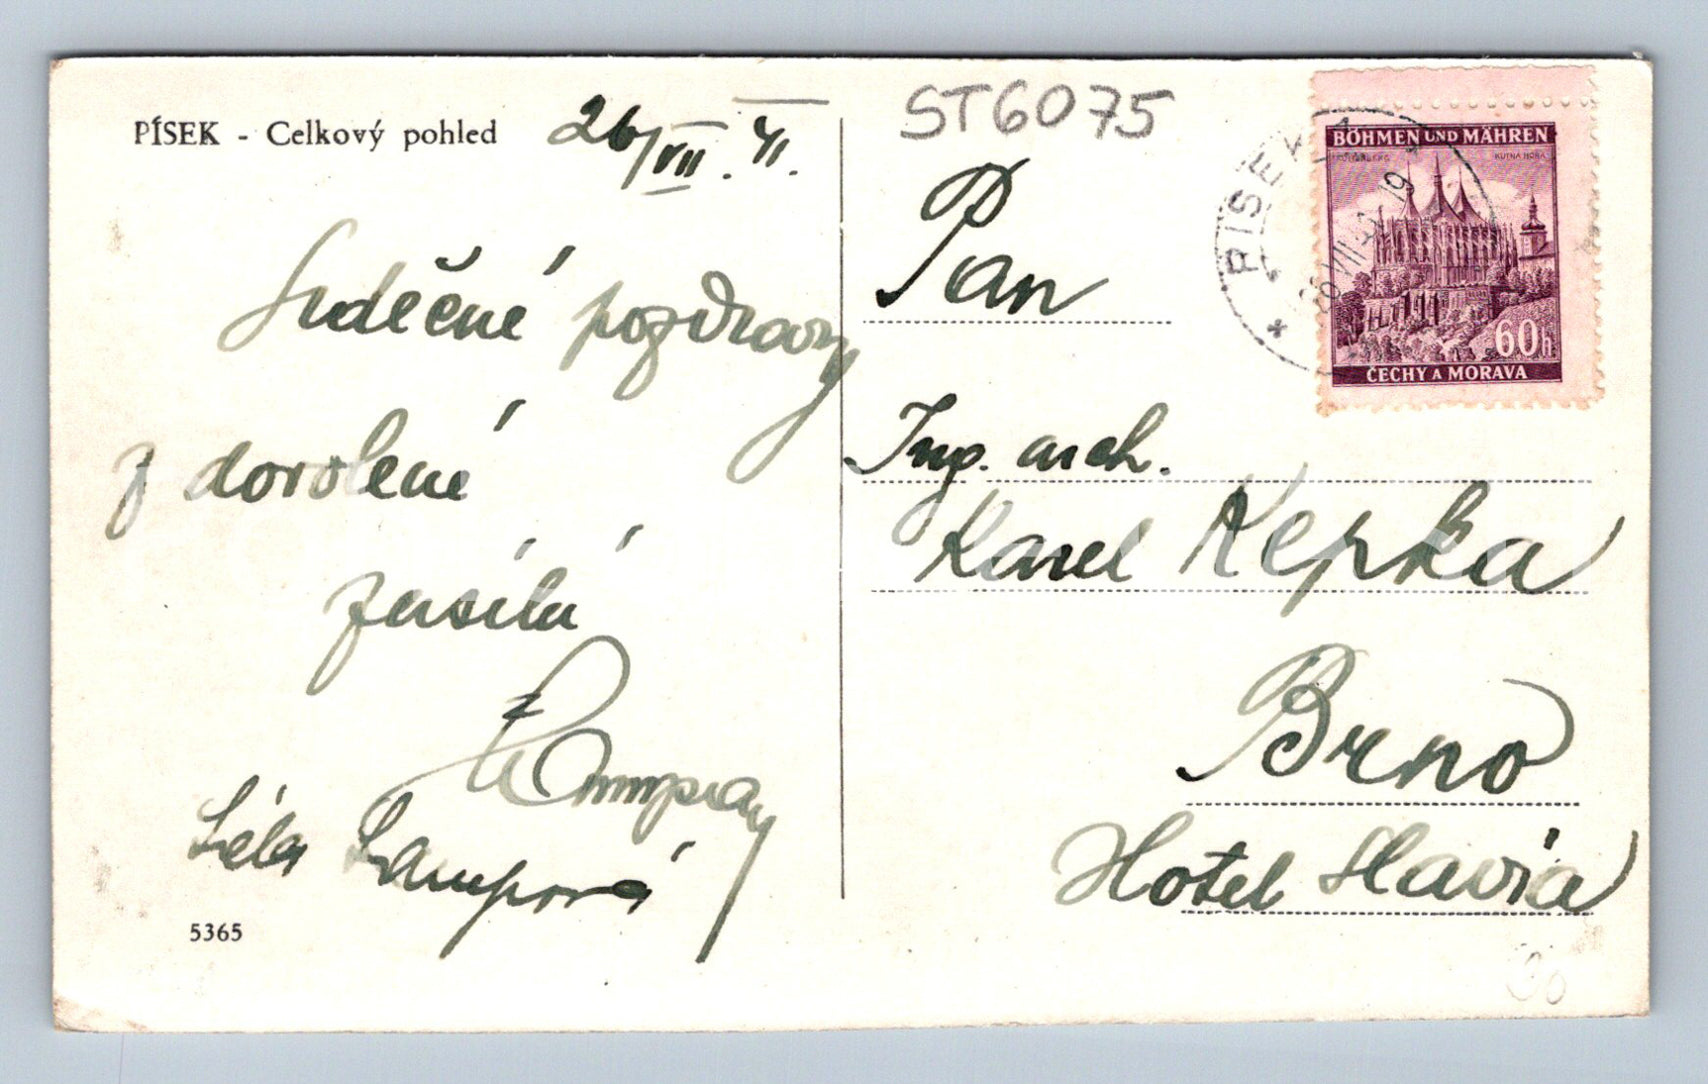 PÍSEK - Celkový pohled
26/VII. 41.
Srdečné pozdravy
z dovolené
zasílá
Léla Lampová
5365
ST6075
PÍSEK 1
BÖHMEN UND MÄHREN
KUTNÁ HORA
60h
ČECHY A MORAVA
Pan
Ing. arch.
Karel Kepka
Brno
Hotel Slavia
30